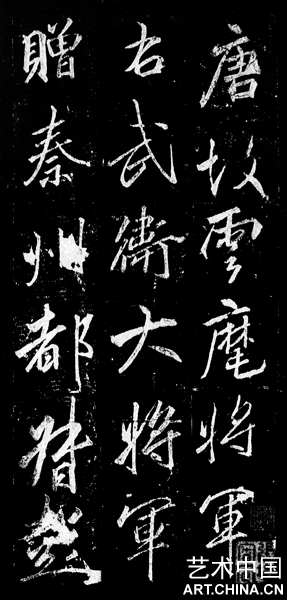 唐故雲麾將軍
右武衛大將軍
贈秦州都督
艺术中国
ART.CHINA.CN